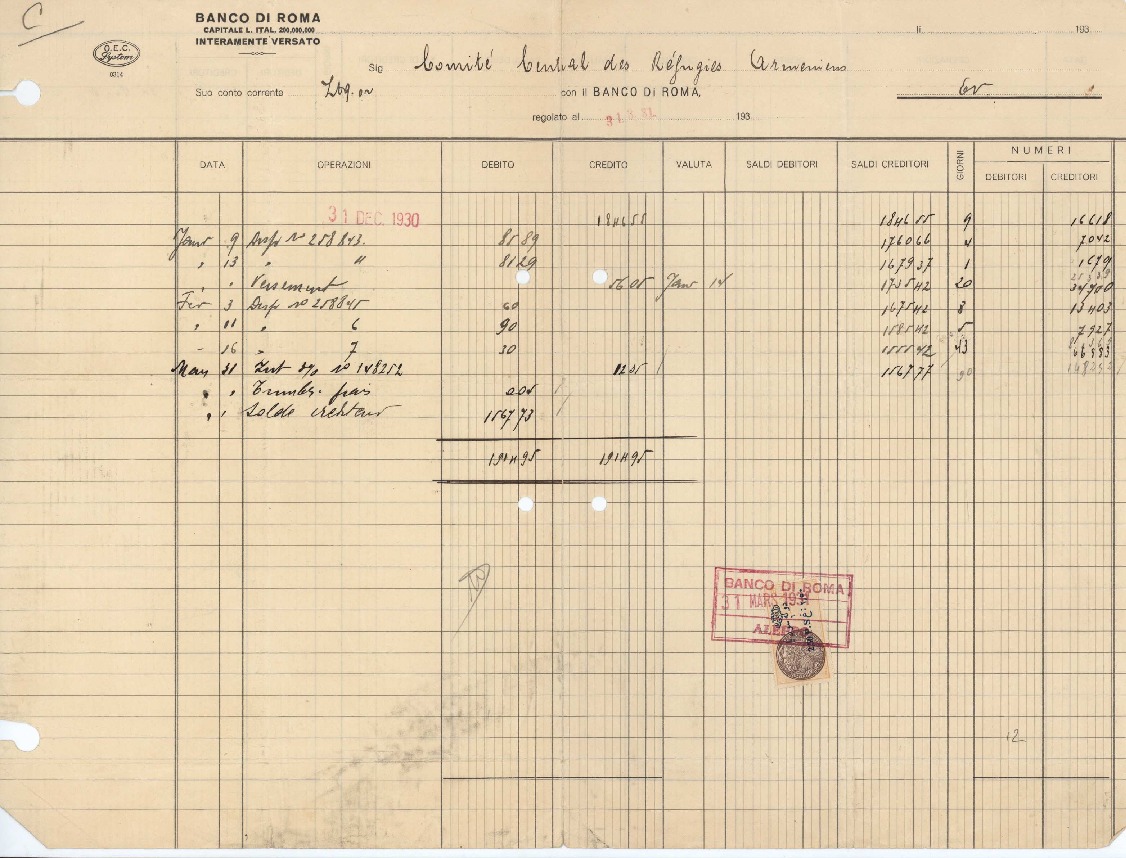 C
BANCO DI ROMA
CAPITALE L. ITAL. 200,000,000
INTERAMENTE VERSATO
O.E.C. System
0314
li 193
Sig Comité Central des Réfugiés Armeniens
Suo conto corrente Ltq. or con il BANCO DI ROMA,
regolato al 31.3.31. 193
DATA OPERAZIONI DEBITO CREDITO VALUTA SALDI DEBITORI SALDI CREDITORI GIORNI NUMERI
DEBITORI CREDITORI
31 DEC. 1930 1846 55 1846 55 9 16618
Janv 9 Disp no 258843. 85 89 1760 66 4 7042
" 13 " " 81 29 1679 37 1 1679
" " Versement 56 05 Janv 14 1735 42 20 34700
Fev 3 Disp no 258845 60 1675 42 8 13403
" 11 " 6 90 1585 42 5 7927
" 16 " 7 30 1555 42 43 66883
Mars 31 Int no 148252 12 35 1567 77 90
" " Timbr. frais 0 05
" " Solde créditeur 1567 73
1914 95 1914 95
BANCO DI ROMA
31 MARS 1931
ALEPPO
12